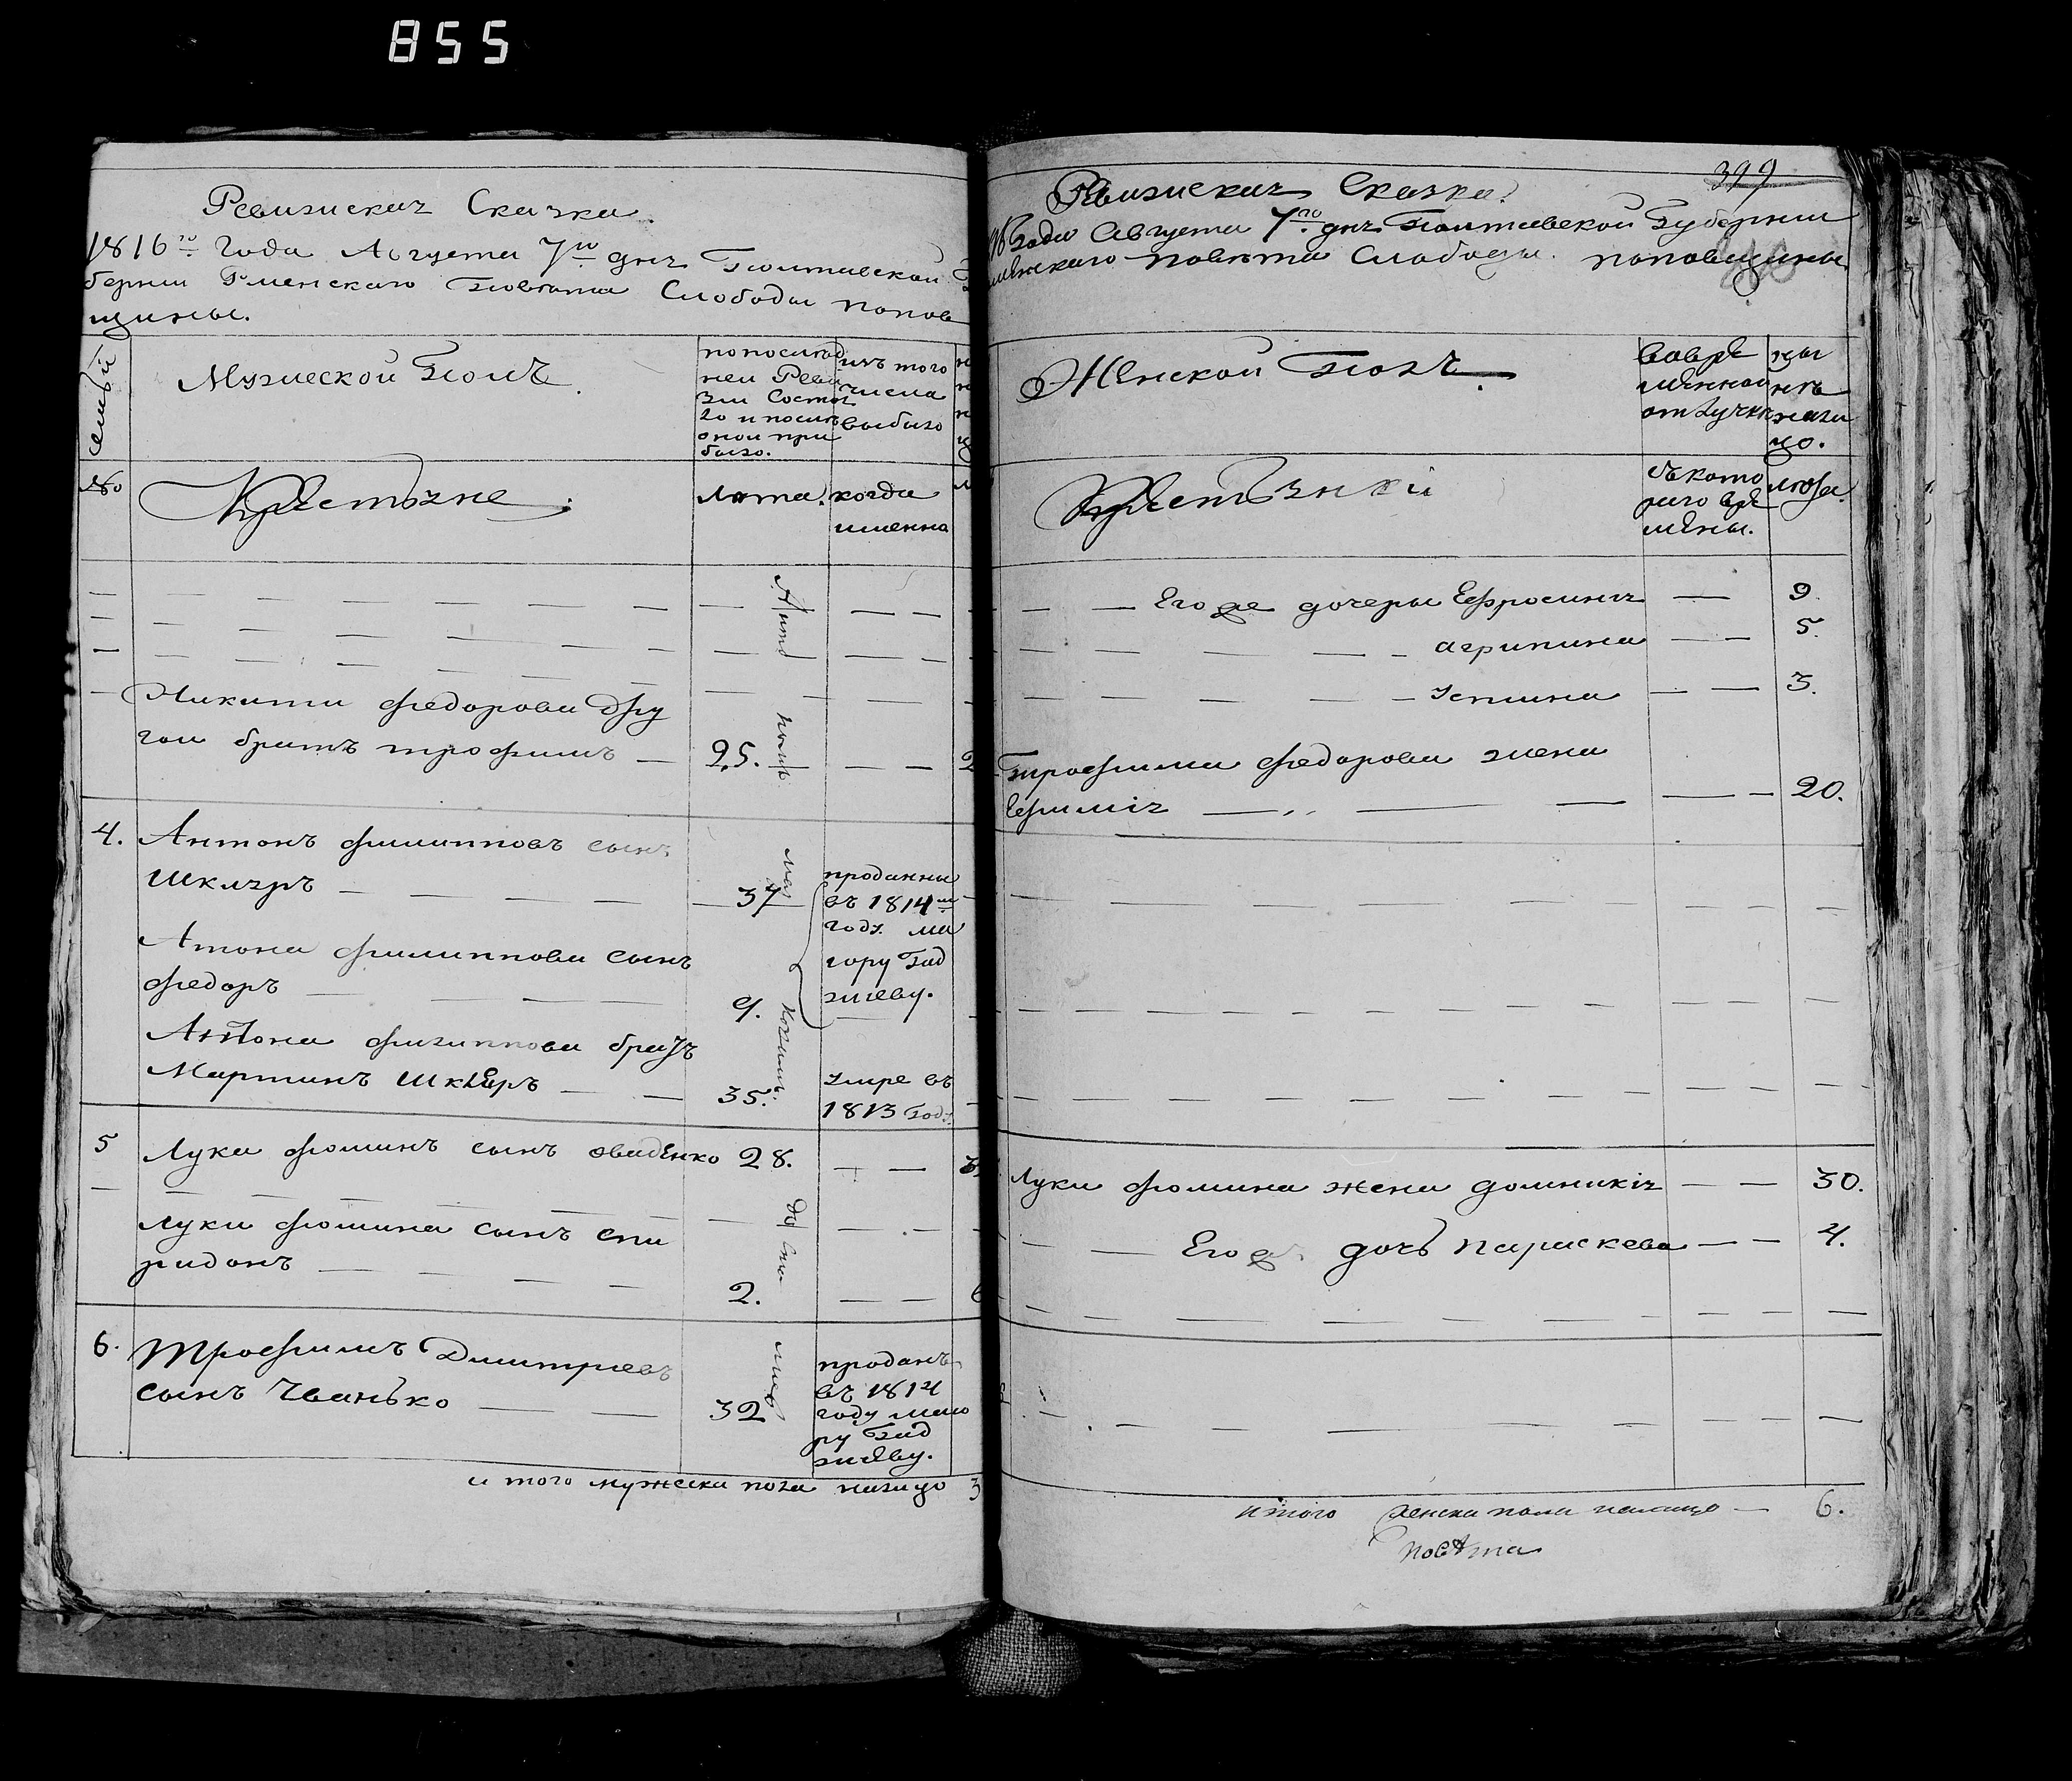 855
Ревизская Сказка.
1816го Года Августа 7го дня Полтавской Гу
бернии Роменского Повета Слободы Попов
щины.
семьи
Мужеской Полъ.
по послед
ней Реви
зии Состоя
ло и после
оной при
было.
изъ того
числа
выбыло
№
Крестьяне.
Лета.
когда
именно
Никиты Федорова дру
гой братъ трофимъ
25.
4.
Антонъ филипповъ сынъ
Шкляръ
37
проданны
въ 1814м
году ма
иору Гад
зиеву.
Антона филиппова сынъ
федоръ
9.
Антона филиппова братъ
Мартинъ Шкляръ
35.
умре въ
1813 году
5
Лука фоминъ сынъ оваденко
28.
Луки фомина сынъ спи
ридонъ
2.
6.
Трофимъ Дмитриевъ
сынъ Чванько
32
проданъ
въ 1814
году маио
ру Гад
зиеву.
и того мужеска пола налицо 3
399
Ревизская Сказка.
1816 Года Августа 7го дня Полтавской Губернии
Роменского повета Слободы поповщины
Женской Полъ.
во вре
менной
отлучке
ны
не
нали
цо.
Крестьянки
съ кото
раго вре
мены.
лета.
Его же дочеры Ефросиния
9.
агрипина
5.
устина
3.
Трофима федорова жена
Ефимия
20.
Луки фомина жена домникия
30.
Его же дочь параскева
4.
итого женска пола налицо
6.
повета